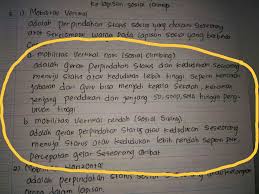 ke lapisan sosial lainnya
1) Mobilitas Vertikal
adalah perpindahan status sosial yang dialami seseorang
atau sekelompok warga pada lapisan sosial yang berbeda
a. mobilitas vertikal naik (sosial climbing)
adalah gerak perpindahan status dan kedudukan seseorang
menuju status atau kedudukan lebih tinggi seperti
guru biasa menjadi kepala sekolah,
jenjang pendidikan dari jenjang SD, SMP, SMA hingga pergu-
ruan tinggi
b. mobilitas vertikal rendah (sosial
adalah gerak perpindahan status atau kedudukan seseorang
menuju status atau kedudukan lebih rendah seperti
pencopotan gelar seseorang akibat
2) Mobilitas Horizontal
adalah perpindahan status sosial seseorang
orang dalam lapisan